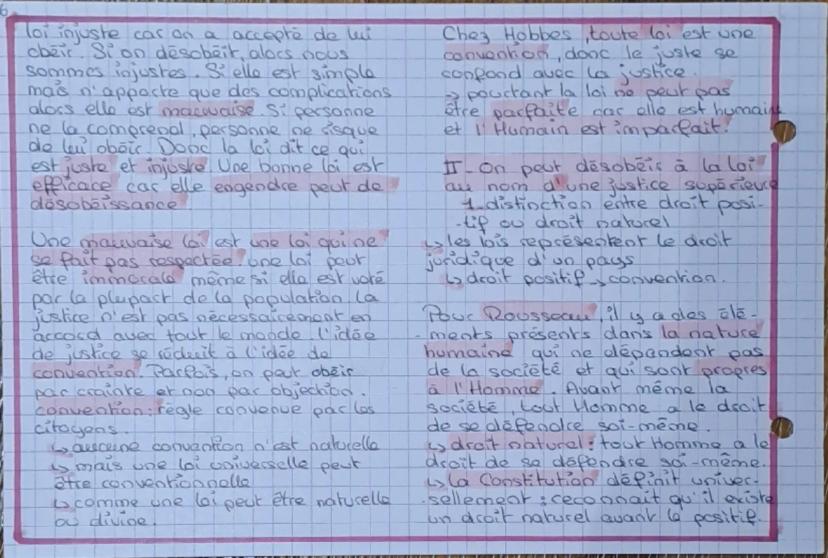 6
loi injuste car on a accepté de lui
obéir. Si on désobéit, alors nous
sommes injustes. Si elle est simple
mais n'apporte que des complications
alors elle est mauvaise. Si personne
ne la comprend, personne ne risque
de lui obéir. Donc la loi dit ce qui
est juste et injuste. Une bonne loi est
efficace car elle engendre peut de
désobéissance.
Une mauvaise loi est une loi qui ne
se fait pas respectée. Une loi peut
être immorale même si elle est voté
par la plupart de la population. La
justice n'est pas nécessairement en
accord avec tout le monde. L'idée
de justice se réduit à l'idée de
convention. Parfois, on peut obéir
par crainte et non par objection.
convention : règle convenue par les
citoyens.
↳ aucune convention n'est naturelle
↳ mais une loi universelle peut
être conventionnelle
↳ comme une loi peut être naturelle
ou divine.
Chez Hobbes, toute loi est une
convention, donc le juste se
confond avec la justice.
→ pourtant la loi ne peut pas
être parfaite car elle est humaine
et l'Humain est imparfait.
II- On peut désobéir à la loi
au nom d'une justice supérieure
1- distinction entre droit posi-
tif ou droit naturel
↳ les lois représentent le droit
juridique d'un pays
↳ droit positif → convention.
Pour Rousseau, il y a des élé-
ments présents dans la nature
humaine qui ne dépendent pas
de la société et qui sont propres
à l'Homme. Avant même la
société, tout Homme a le droit
de se défendre soi-même.
↳ droit naturel : tout Homme a le
droit de se défendre soi-même.
↳ la Constitution définit univer-
sellement : reconnait qu'il existe
un droit naturel avant le positif.